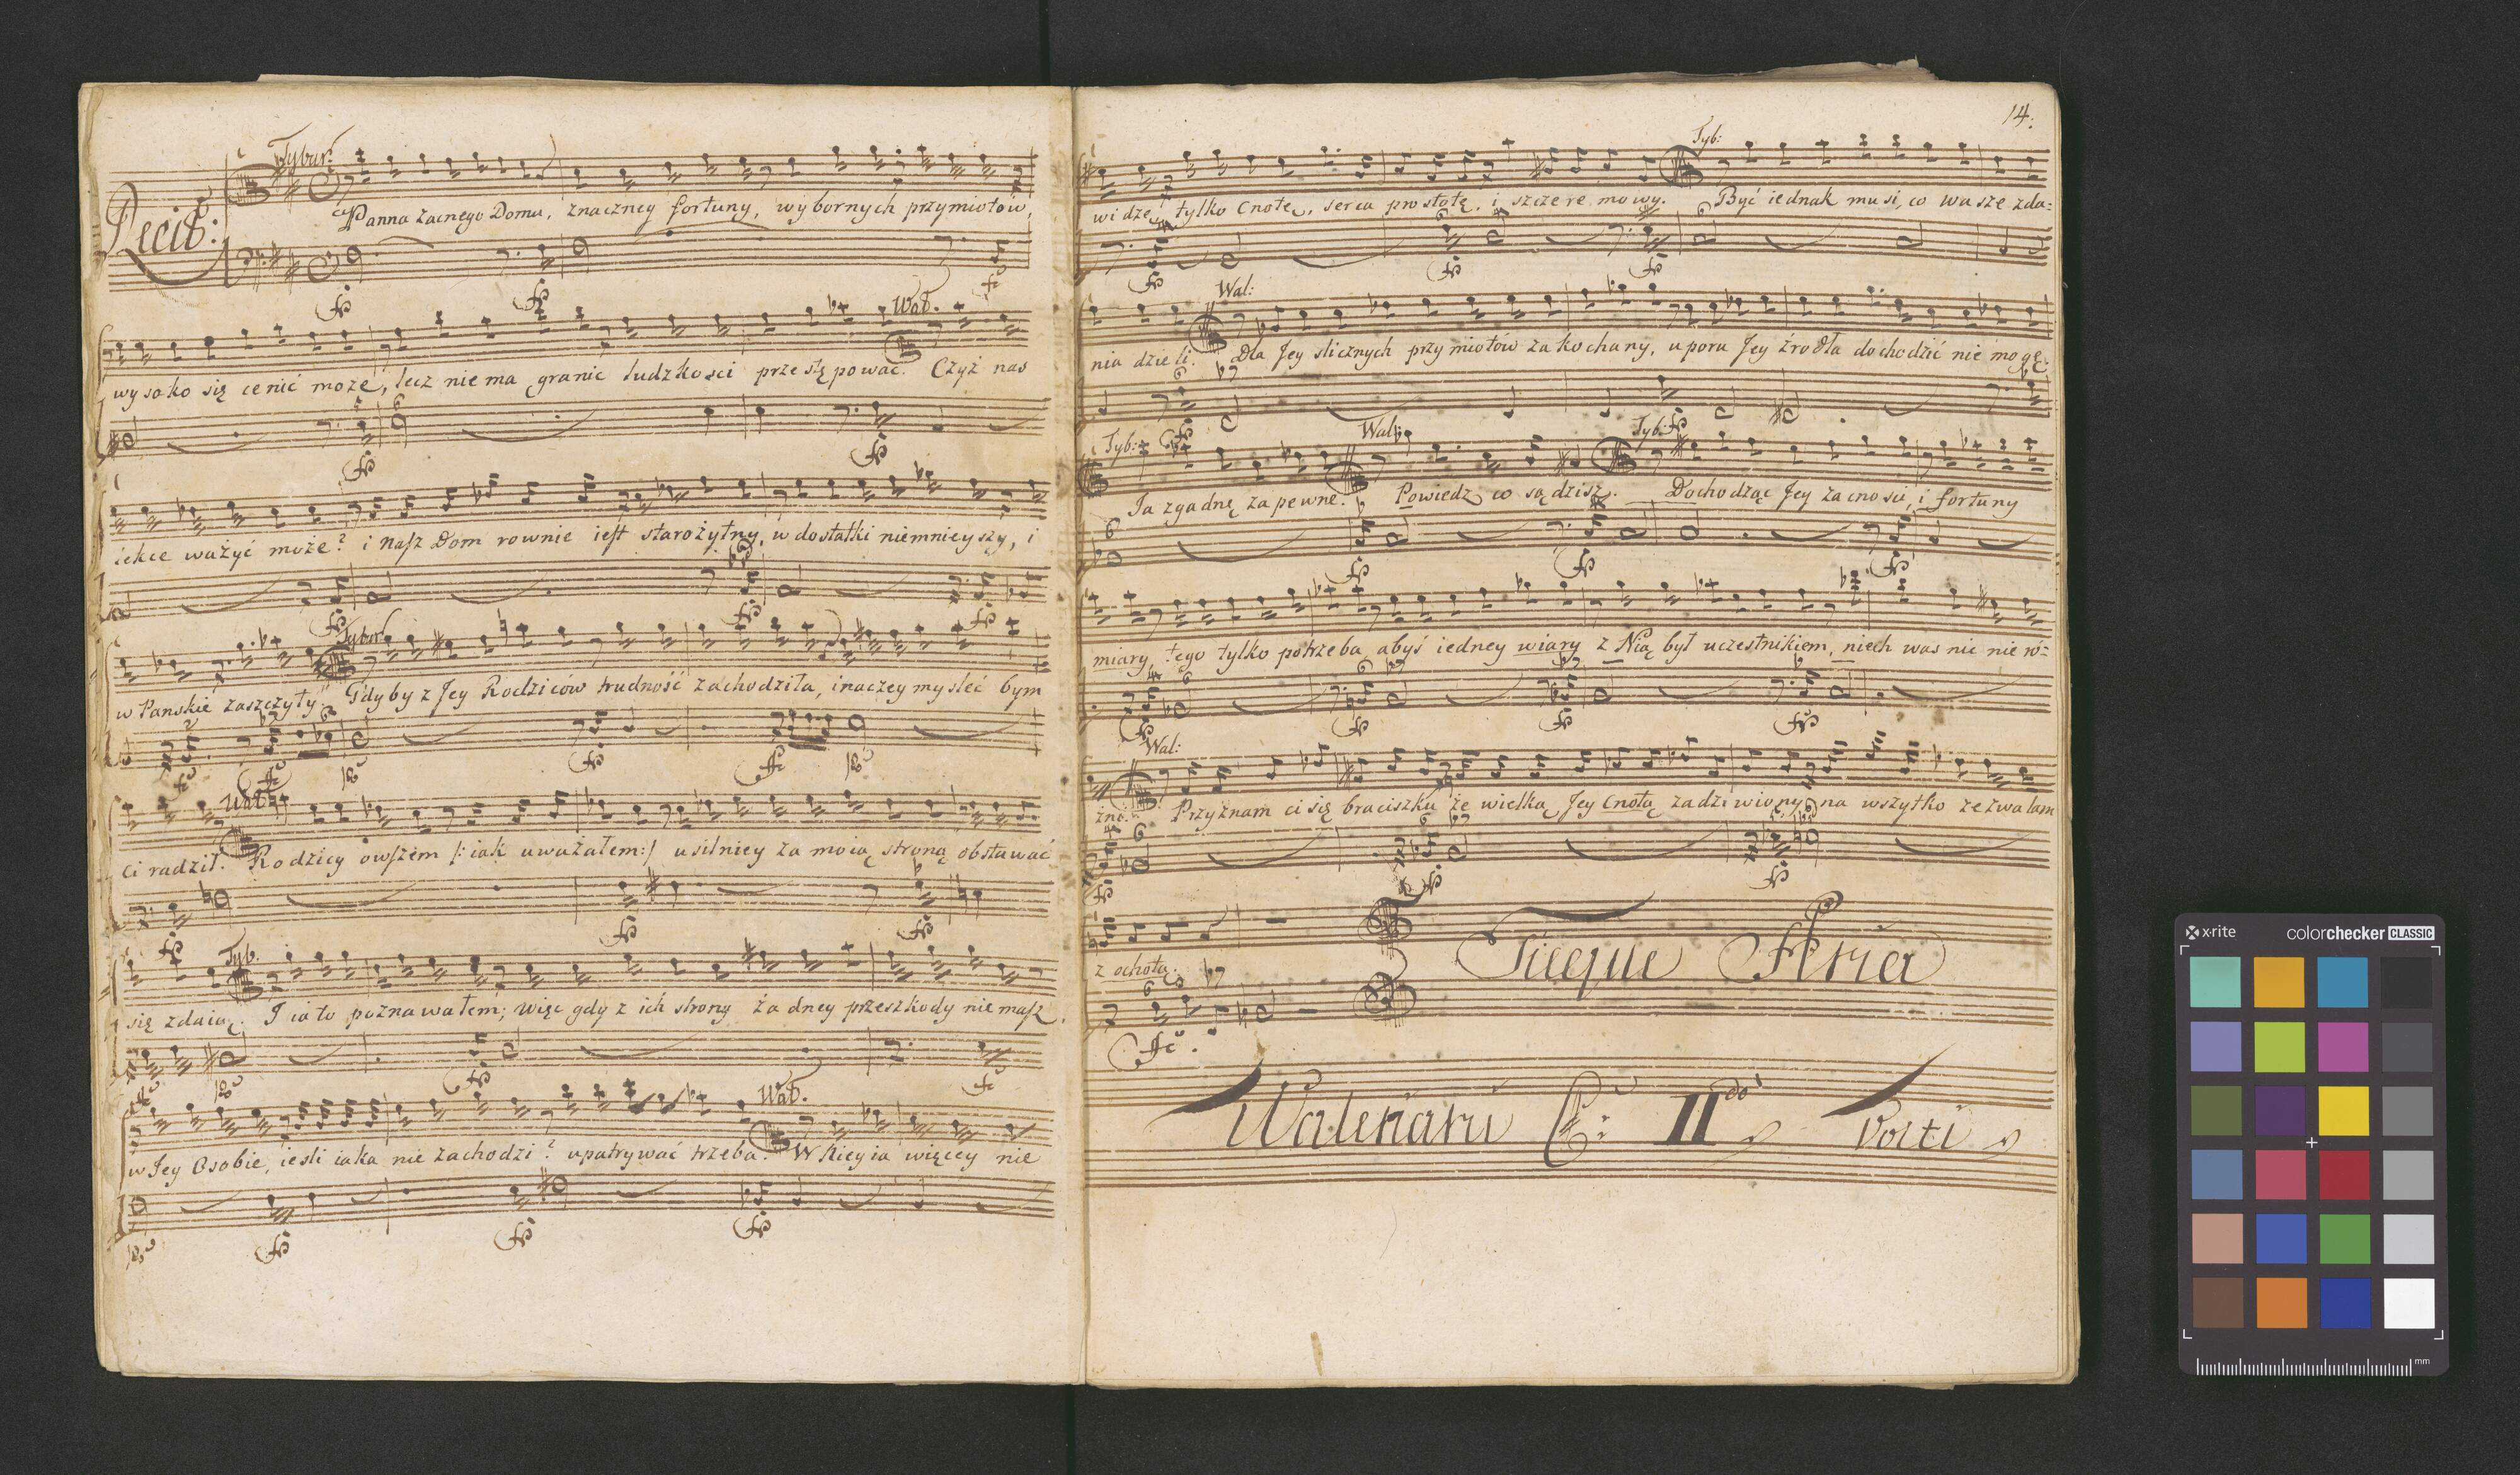 Tybur:
Recit:
Panna zacnego Domu, znaczney fortuny, wybornych przymiotów,
Wal.
wysoko się cenić może, lecz niema granic ludzkosci przestępować. Czyż nas
lekce ważyć może? i nasz Dom rownie iest starożytny, w dostatki niemnieyszy, i
Tybur:
w Panskie zaszczyty. Gdyby z Jey Rodziców trudność zachodziła, inaczey mysleć bym
Wal:
ci radził. Rodzicy owszem /: iak uważałem :/ usilniey za moią stroną obstawać
Tyb.
się zdaią. I ia to poznawałem; więc gdy z ich strony żadney przeszkody niemasz
Wal.
w Jey Osobie, iesli iaka nie zachodzi? upatrywać trzeba. W Niey ia więcey nie
14.
Tyb:
widzę, tylko Cnotę, serca prostotę, i szczere mowy. Być iednak musi, co wasze zda=
Wal:
nia dzieli. Dla Jey slicznych przymiotów zakochany, uporu Jey źrodła dochodzić nie mogę.
Tyb: Wal: Tyb:
Ja zgadnę zapewne. Powiedz co sądzisz. Dochodząc Jey zacnosci, i fortuny
miary, tego tylko potrzeba abyś iedney wiary z Nią był uczestnikiem, niech was nic nie ró=
Wal:
żni. Przyznam ci się braciszku że wielką Jey Cnotą zadziwiony, na wszytko zezwalam
z ochotą.
Sieque Aria
Waleriani C: II do Volti
x-rite colorchecker CLASSIC
mm